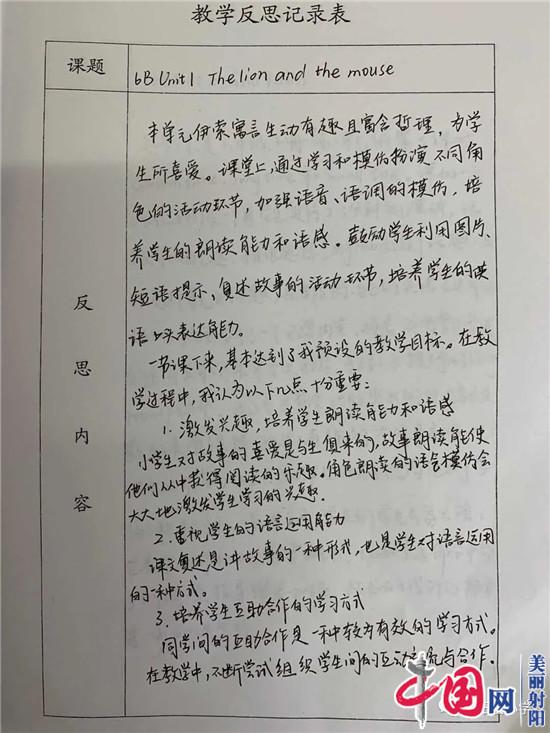 教学反思记录表
课题
6B Unit1 The lion and the mouse
反思内容
本单元伊索寓言生动有趣且富含哲理，为学
生所喜爱。课堂上，通过学习和模仿扮演不同角
色的活动环节，加强语音、语调的模仿，培
养学生的朗读能力和语感。鼓励学生利用图片、
短语提示、复述故事的活动环节，培养学生的英
语口头表达能力。
一节课下来，基本达到了我预设的教学目标。在教
学过程中，我认为以下几点十分重要：
1. 激发兴趣，培养学生朗读能力和语感
小学生对故事的喜爱是与生俱来的，故事朗读能使
他们从中获得阅读的乐趣。角色朗读的语色模仿会
大大地激发学生学习的兴趣.
2. 重视学生的语言运用能力
课文复述是讲故事的一种形式，也是学生对语言运用
的一种方式。
3. 培养学生互助合作的学习方式
同学间的互助合作是一种较为有效的学习方式。
在教学中，不断尝试组织学生间的互动交流与合作.
中国网
美丽射阳